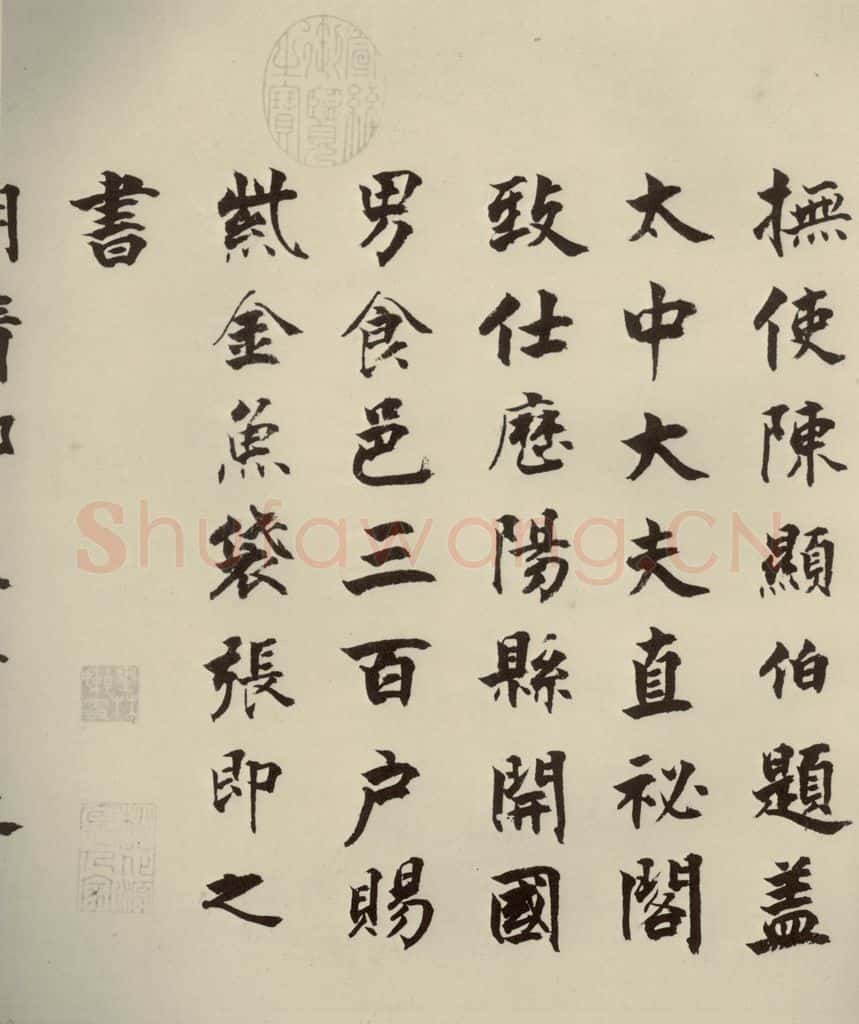 撫使陳顯伯題盖
太中大夫直祕閣
致仕歷陽縣開國
男食邑三百户賜
紫金魚袋張即之
書
宣統御覽之寶
Shufawang.CN